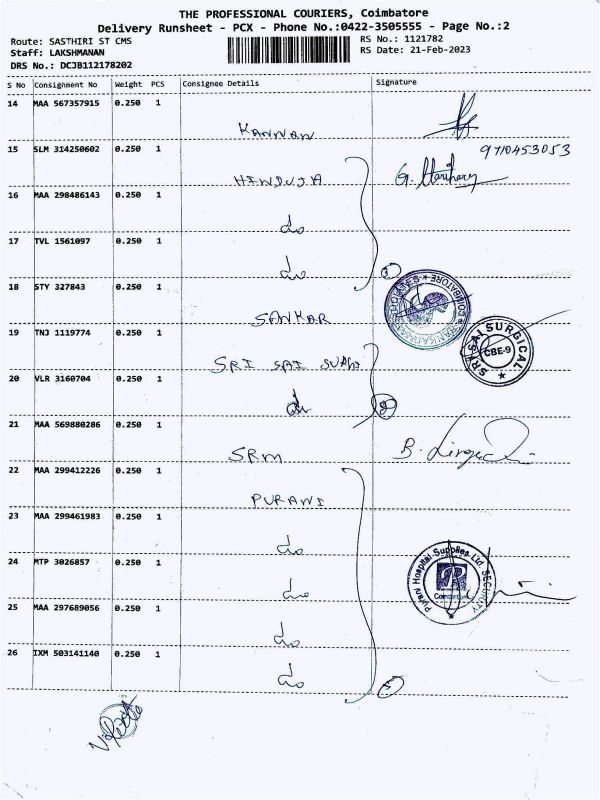 THE PROFESSIONAL COURIERS, Coimbatore
Delivery Runsheet - PCX - Phone No.:0422-3505555 - Page No.:2
Route: SASTHIRI ST CMS
RS No.: 1121782
Staff: LAKSHMANAN
RS Date: 21-Feb-2023
DRS No.: DCJB112178202
S No Consignment No Weight PCS Consignee Details Signature
14 MAA 567357915 0.250 1
KANNAN
15 SLM 314250602 0.250 1 9710453053
HINDUJA G. Hariharan
16 MAA 298486143 0.250 1
do
17 TVL 1561097 0.250 1
do 3
18 STY 327843 0.250 1
SANKAR
COIMBATORE
19 TNJ 1119774 0.250 1
SRI SAI SURGI
SRI SAI SURGICAL
CBE-9
20 VLR 3160704 0.250 1
do 2
21 MAA 569880286 0.250 1
SRM B.
22 MAA 299412226 0.250 1
PURANI
23 MAA 299461983 0.250 1
do
24 MTP 3026857 0.250 1
do
Purani Hospital Supplies Ltd. SECURITY
Coimbatore
25 MAA 297689056 0.250 1
do
26 IXM 503141140 0.250 1
do 5